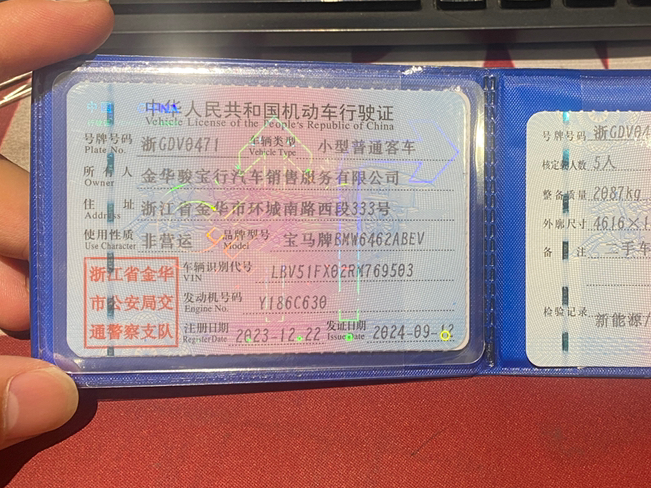 中华人民共和国机动车行驶证
Vehicle License of the People's Republic of China
号牌号码 浙GDV0471 车辆类型 小型普通客车
Plate No. Vehicle Type
所有人 金华骏宝行汽车销售服务有限公司
Owner
住址 浙江省金华市环城南路西段333号
Address
使用性质 非营运 品牌型号 宝马牌BMW6462ABEV
Use Character Model
浙江省金华
市公安局交
通警察支队
车辆识别代号 LBV51FX02RM769503
VIN
发动机号码 Y186C630
Engine No.
注册日期 2023-12-22 发证日期 2024-09-12
Register Date Issue Date
号牌号码 浙GDV04
核定载人数 5人
整备质量 2087kg
外廓尺寸 4616×
备注 二手车
检验记录
新能源/